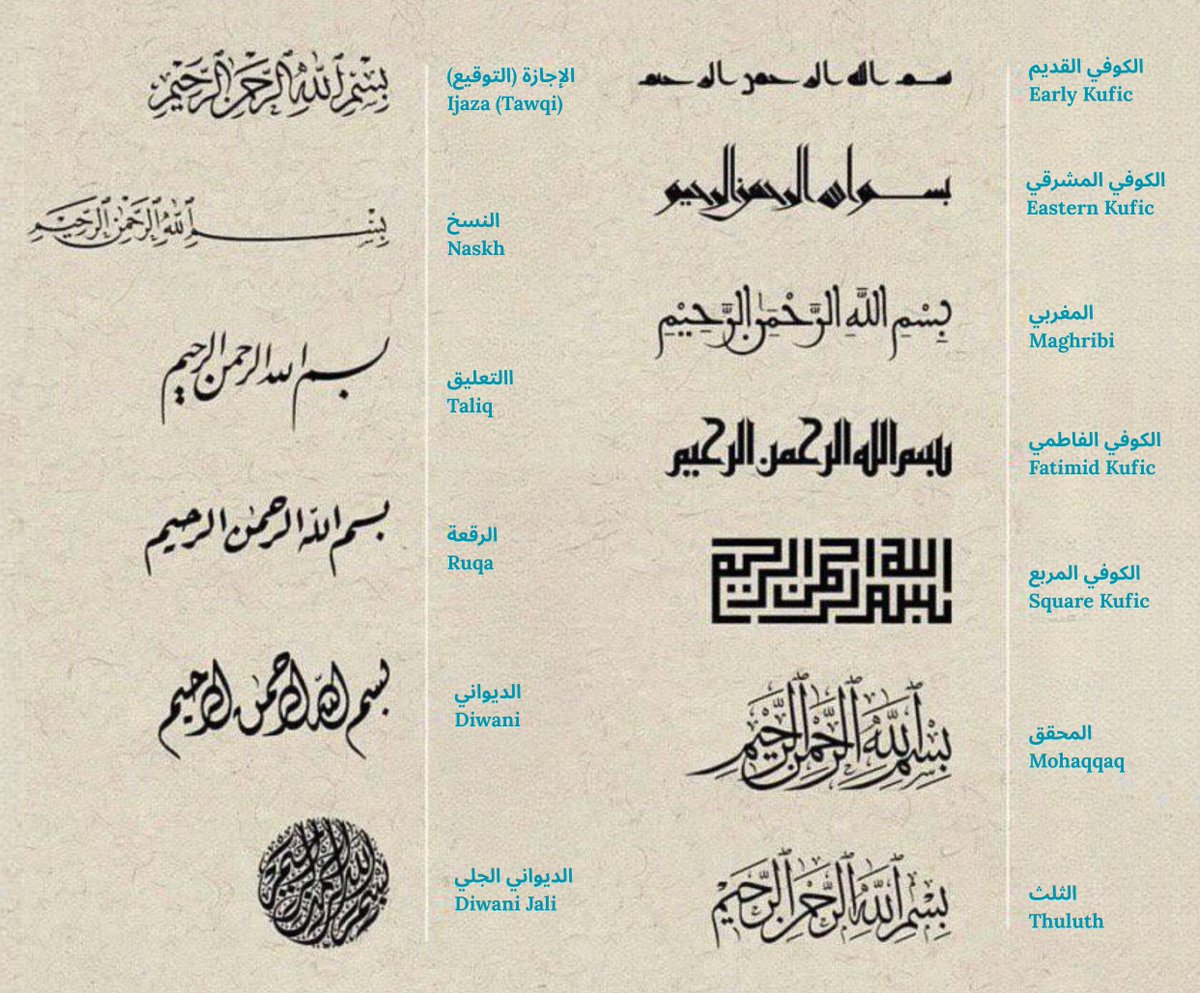 بسم الله الرحمن الرحيم
الكوفي القديم
Early Kufic
بسم الله الرحمن الرحيم
الكوفي المشرقي
Eastern Kufic
بِسْمِ اللَّهِ الرَّحْمَٰنِ الرَّحِيْمِ
المغربي
Maghribi
بسم الله الرحمن الرحيم
الكوفي الفاطمي
Fatimid Kufic
بسم الله الرحمن الرحيم
الكوفي المربع
Square Kufic
بِسْمِ اللَّهِ الرَّحْمَٰنِ الرَّحِيْمِ
المحقق
Mohaqqaq
بِسْمِ اللَّهِ الرَّحْمَٰنِ الرَّحِيْمِ
الثلث
Thuluth
بِسْمِ اللَّهِ الرَّحْمَٰنِ الرَّحِيْمِ
الإجازة (التوقيع)
Ijaza (Tawqi)
بِسْمِ اللَّهِ الرَّحْمَٰنِ الرَّحِيْمِ
النسخ
Naskh
بسم الله الرحمن الرحيم
االتعليق
Taliq
بسم الله الرحمن الرحيم
الرقعة
Ruqa
بسم الله الرحمن الرحيم
الديواني
Diwani
بسم الله الرحمن الرحيم
الديواني الجلي
Diwani Jali